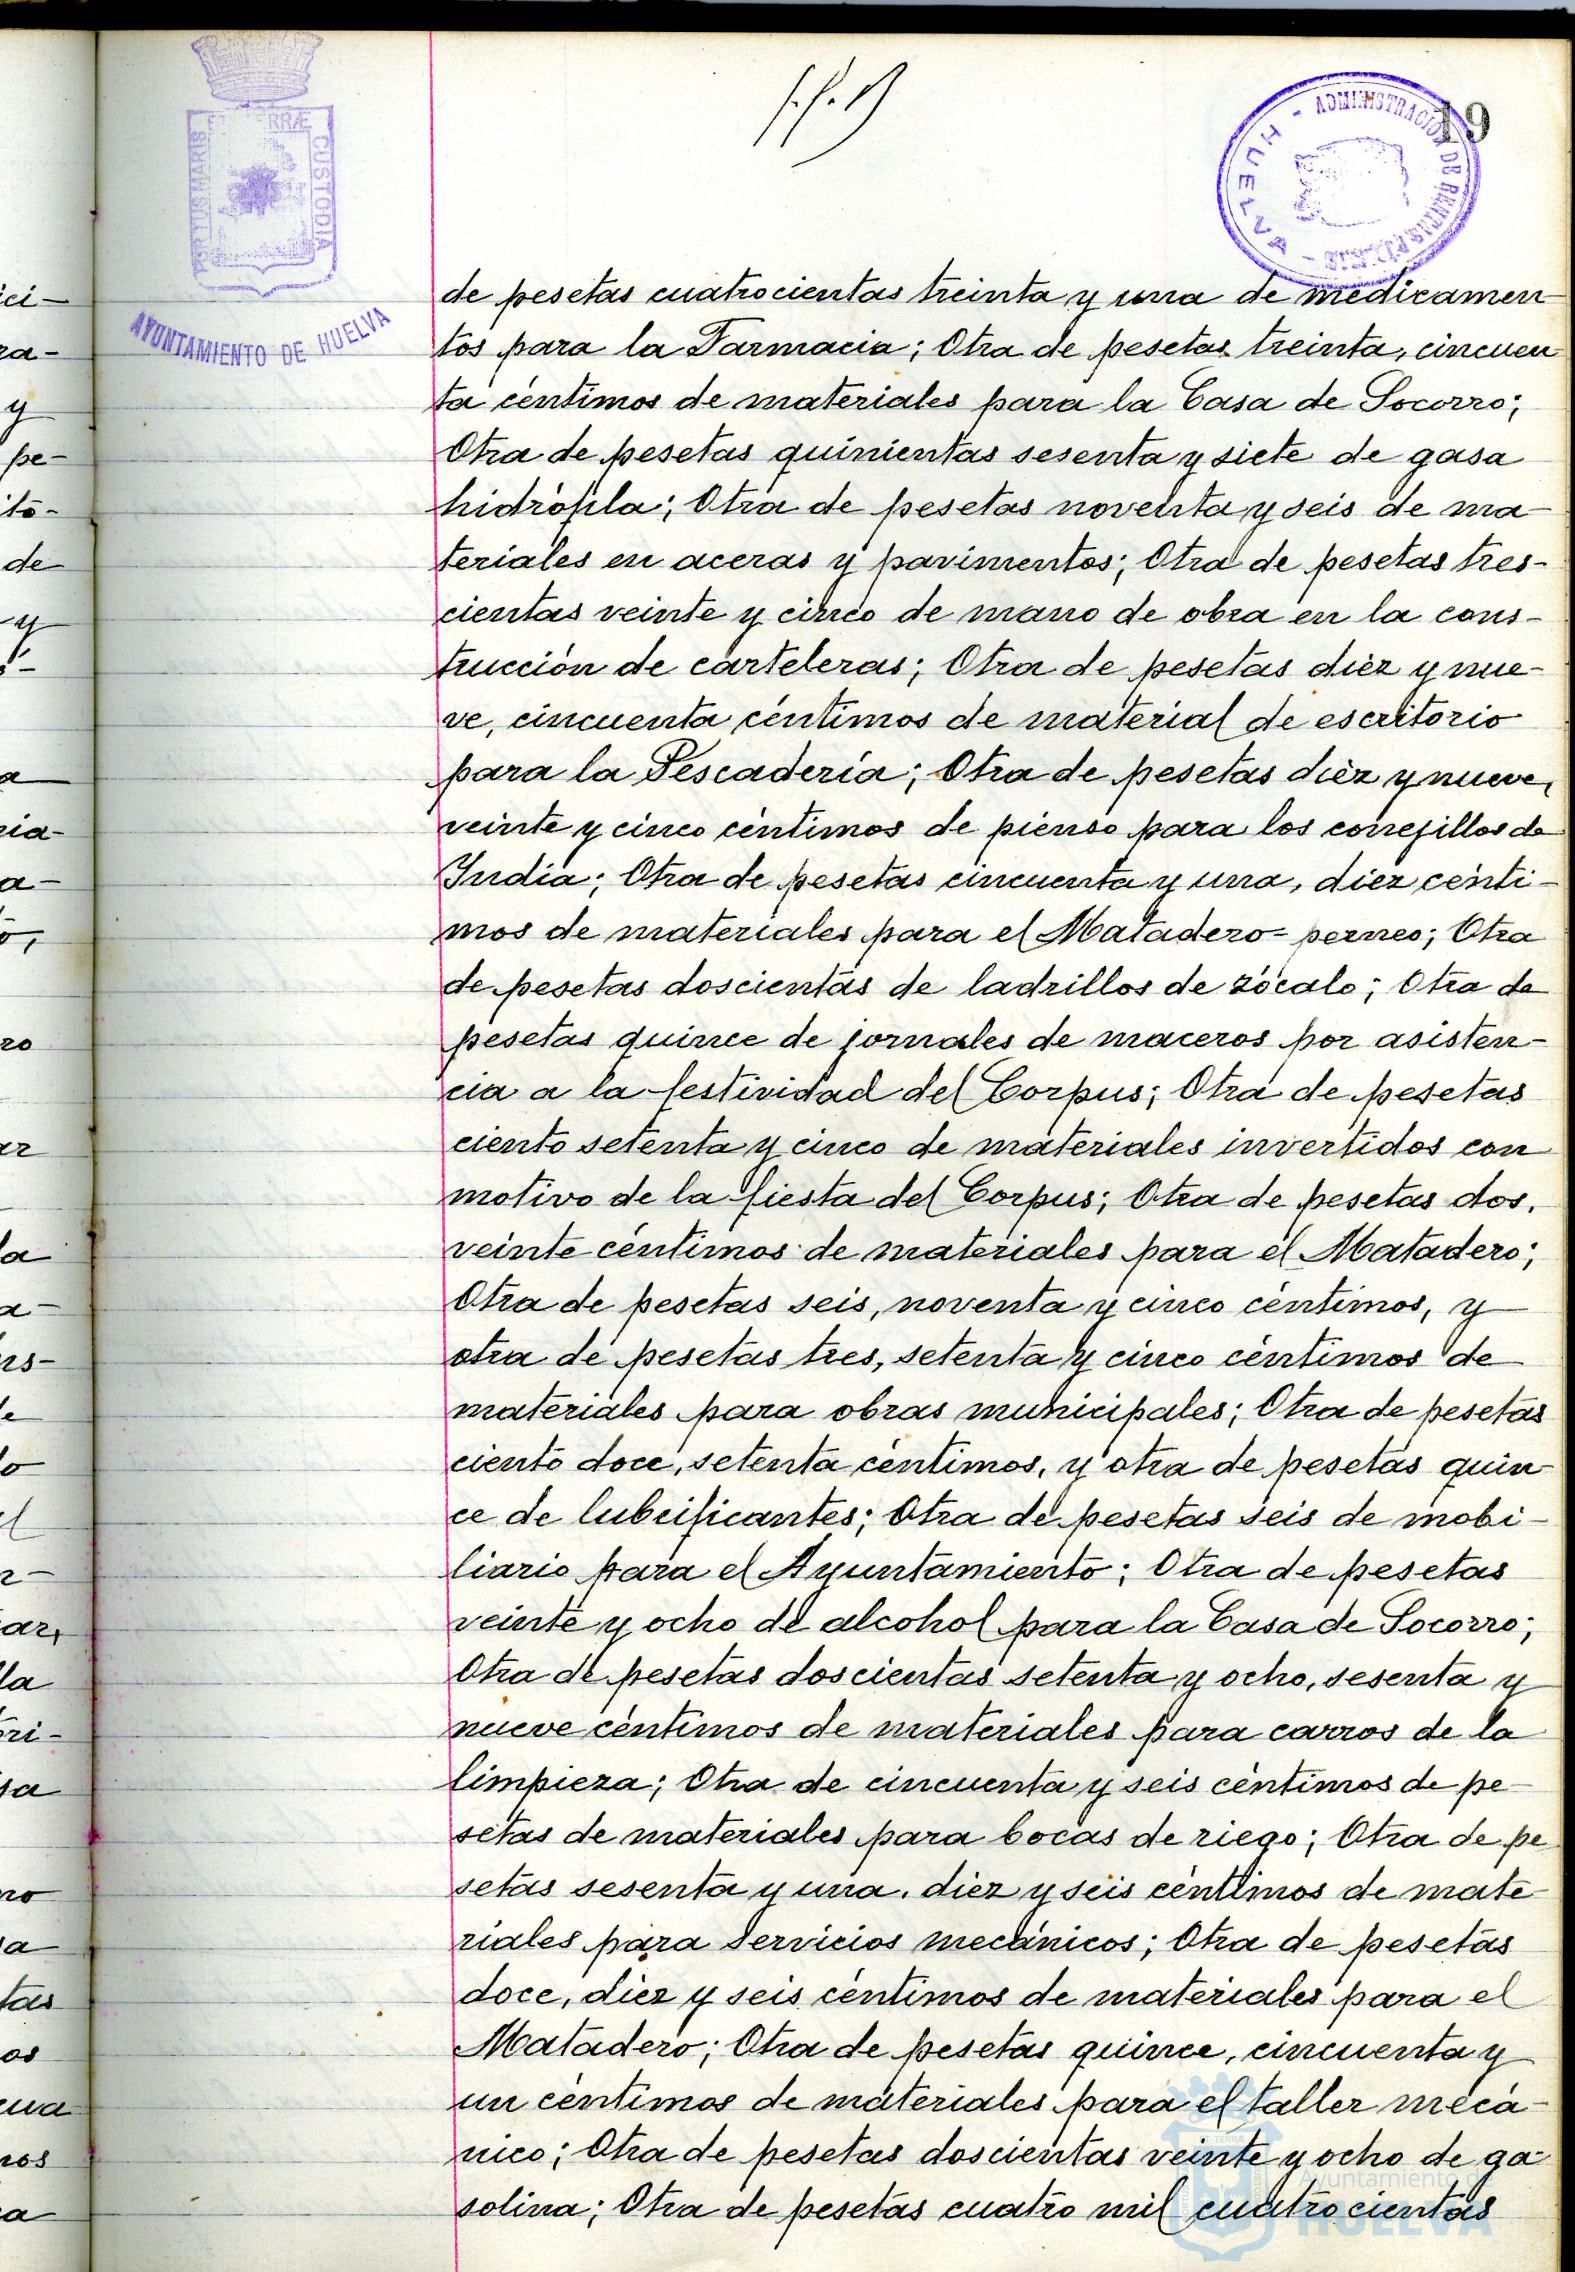 19
ADMINISTRACIÓN DE RENTAS PÚBLICAS - HUELVA -
PORTUS MARIS ET TERRÆ CUSTODIA
AYUNTAMIENTO DE HUELVA
de pesetas cuatrocientas treinta y una de medicamen
tos para la Farmacia; Otra de pesetas treinta, cincuen
ta céntimos de materiales para la Casa de Socorro;
Otra de pesetas quinientas sesenta y siete de gasa
hidrófila; Otra de pesetas noventa y seis de ma-
teriales en aceras y pavimentos; Otra de pesetas tres-
cientas veinte y cinco de mano de obra en la cons-
trucción de carteleras; Otra de pesetas diez y nue-
ve, cincuenta céntimos de material de escritorio
para la Pescadería; Otra de pesetas diez y nueve,
veinte y cinco céntimos de pienso para los conejillos de
India; Otra de pesetas cincuenta y una, diez cénti-
mos de materiales para el Matadero=perneo; Otra
de pesetas doscientas de ladrillos de zócalo; Otra de
pesetas quince de jornales de maceros por asisten-
cia a la festividad del Corpus; Otra de pesetas
ciento setenta y cinco de materiales invertidos con
motivo de la fiesta del Corpus; Otra de pesetas dos,
veinte céntimos de materiales para el Matadero;
Otra de pesetas seis, noventa y cinco céntimos, y
otra de pesetas tres, setenta y cinco céntimos de
materiales para obras municipales; Otra de pesetas
ciento doce, setenta céntimos, y otra de pesetas quin
ce de lubrificantes; Otra de pesetas seis de mobi-
liario para el Ayuntamiento; Otra de pesetas
veinte y ocho de alcohol para la Casa de Socorro;
Otra de pesetas doscientas setenta y ocho, sesenta y
nueve céntimos de materiales para carros de la
limpieza; Otra de cincuenta y seis céntimos de pe-
setas de materiales para bocas de riego; Otra de pe
setas sesenta y una, diez y seis céntimos de mate
riales para servicios mecánicos; Otra de pesetas
doce, diez y seis céntimos de materiales para el
Matadero; Otra de pesetas quince, cincuenta y
un céntimos de materiales para el taller mecá-
nico; Otra de pesetas doscientas veinte y ocho de ga-
solina; Otra de pesetas cuatro mil cuatrocientas
Ayuntamiento de
HUELVA